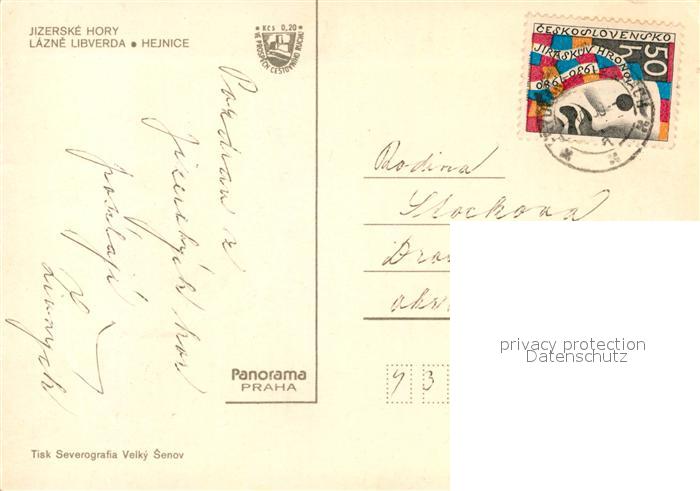 JIZERSKÉ HORY
LÁZNĚ LIBVERDA ● HEJNICE
Kčs 0,20
VE PROSPĚCH CESTOVNÍHO RUCHU
ČESKOSLOVENSKO
50 h
JIRÁSKŮV HRONOV
1930-1980
Pozdrav z
Jizerských hor
posílají
Rodina
Stockova
Panorama
PRAHA
73
Tisk Severografia Velký Šenov
privacy protection
Datenschutz